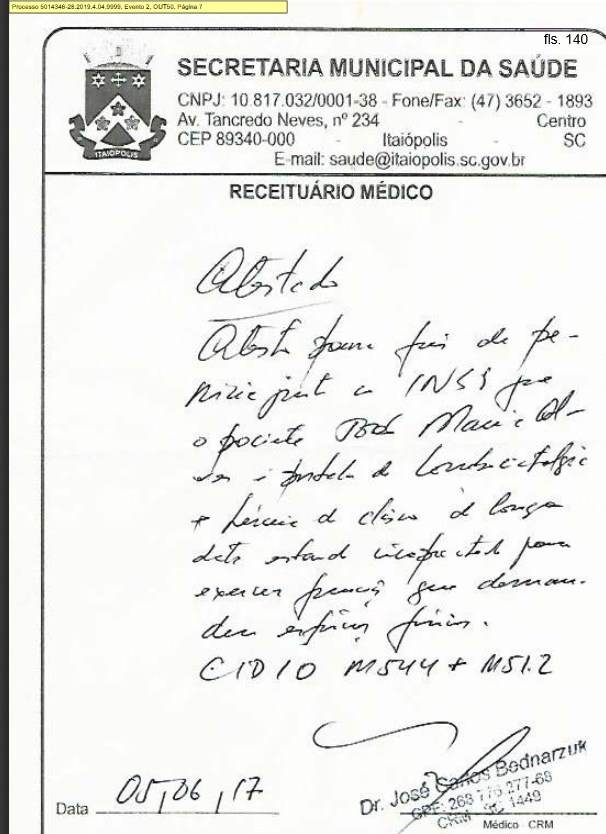 Processo 5014346-28.2019.4.04.9999, Evento 2, OUT50, Página 7
fls. 140
SECRETARIA MUNICIPAL DA SAÚDE
CNPJ: 10.817.032/0001-38 - Fone/Fax: (47) 3652 - 1893
Av. Tancredo Neves, nº 234 - Centro
CEP 89340-000 - Itaiópolis - SC
E-mail: saude@itaiopolis.sc.gov.br
ITAIÓPOLIS
RECEITUÁRIO MÉDICO
Atestado
Atesto para fins de pe-
rícia junto ao INSS que
o paciente José Maria Al-
ves é portador de lombociatalgia
+ hérnia de disco de longa
data estando incapacitado para
exercer funções que deman-
dem esforços físicos.
CID10 M544 + M51.2
Data 05/06/17
Dr. José Carlos Bednarzuk
CPF: 268 776 277-68
CRM SC 1449
Médico CRM